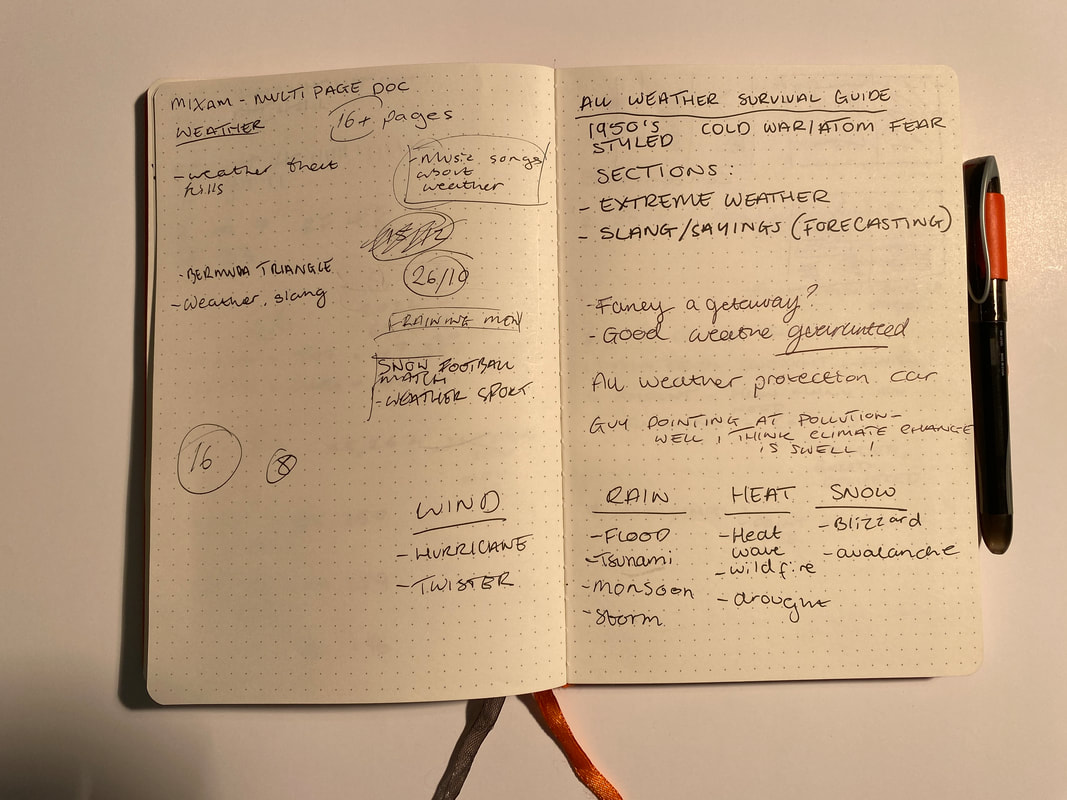 MIXAM - MULTI PAGE DOC
WEATHER
16+ pages
- weather that
kills
- Music songs
about
weather
26/10
- BERMUDA TRIANGLE
- Weather slang
RAINING MEN
SNOW FOOTBALL
MATCH
- WEATHER SPORT.
16
8
WIND
- HURRICANE
- TWISTER
ALL WEATHER SURVIVAL GUIDE
1950'S COLD WAR/ATOM FEAR
STYLED
SECTIONS:
- EXTREME WEATHER
- SLANG/SAYINGS (FORECASTING)
- Fancy a getaway?
- Good weathe guaruntted
All weather protection car
GUY POINTING AT POLLUTION -
WELL, I THINK CLIMATE CHANGE
IS SWELL!
RAIN
- FLOOD
- Tsunami
- Monsoon
- Storm
HEAT
- Heat
wave
- wildfire
- drought
SNOW
- Blizzard
- avalanche